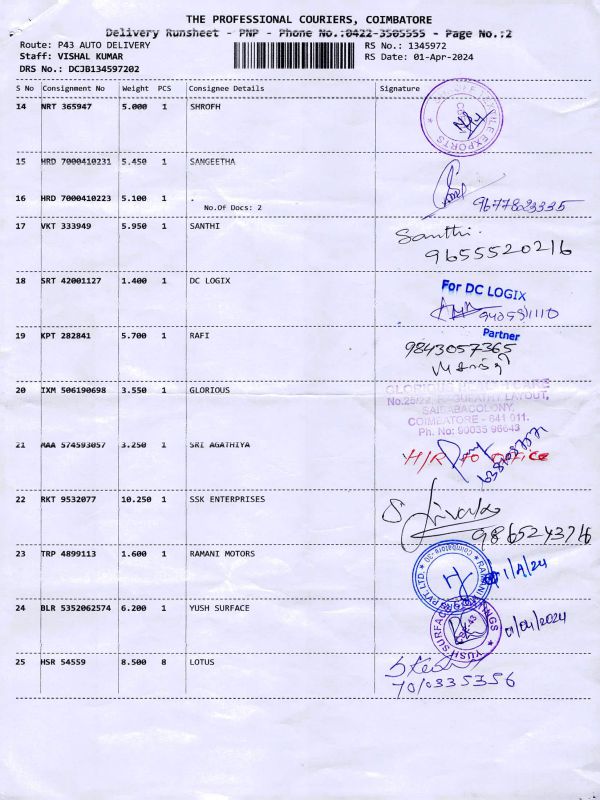 THE PROFESSIONAL COURIERS, COIMBATORE
Delivery Runsheet - PNP - Phone No.:0422-3505555 - Page No.:2
Route: P43 AUTO DELIVERY RS No.: 1345972
Staff: VISHAL KUMAR RS Date: 01-Apr-2024
DRS No.: DCJB134597202
S No Consignment No Weight PCS Consignee Details Signature
14 NRT 365947 5.000 1 SHROFH
EXPORTS
15 HRD 7000410231 5.450 1 SANGEETHA
16 HRD 7000410223 5.100 1 .
No.Of Docs: 2
9677823335
17 VKT 333949 5.950 1 SANTHI Santhi.
9655520216
18 SRT 42001127 1.400 1 DC LOGIX For DC LOGIX
Partner
19 KPT 282841 5.700 1 RAFI 9843057365
20 IXM 506190698 3.550 1 GLORIOUS
SAIBABACOLONY,
COIMBATORE - 641 011.
Ph. No: 90035 96643
21 MAA 574593057 3.250 1 SRI AGATHIYA H/R to office
22 RKT 9532077 10.250 1 SSK ENTERPRISES
9865243716
23 TRP 4899113 1.600 1 RAMANI MOTORS 1/4/24
24 BLR 5352062574 6.200 1 YUSH SURFACE YUSH SURFACE COATINGS 01/04/2024
25 HSR 54559 8.500 8 LOTUS
7010335356